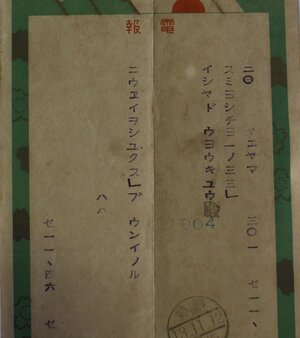 電報
二〇 マエヤマ 三〇一 セ一一、
スミヨシチヨ一ノ三三」
イシヤド ウヨウキユウ
004
ニウエイヲシユクス」ブ ウンイノル
ハハ
セ一一、四六 セ
13.11.12